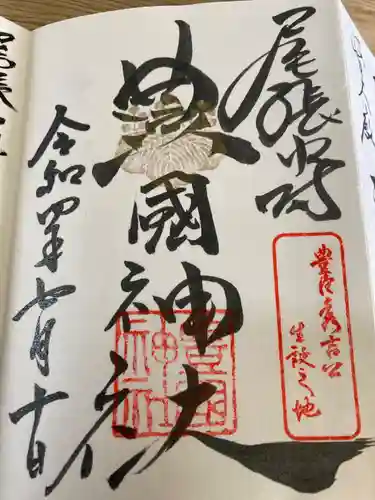 尾張中村
豊國神社
令和四年七月十日
豊臣秀吉公
生誕之地